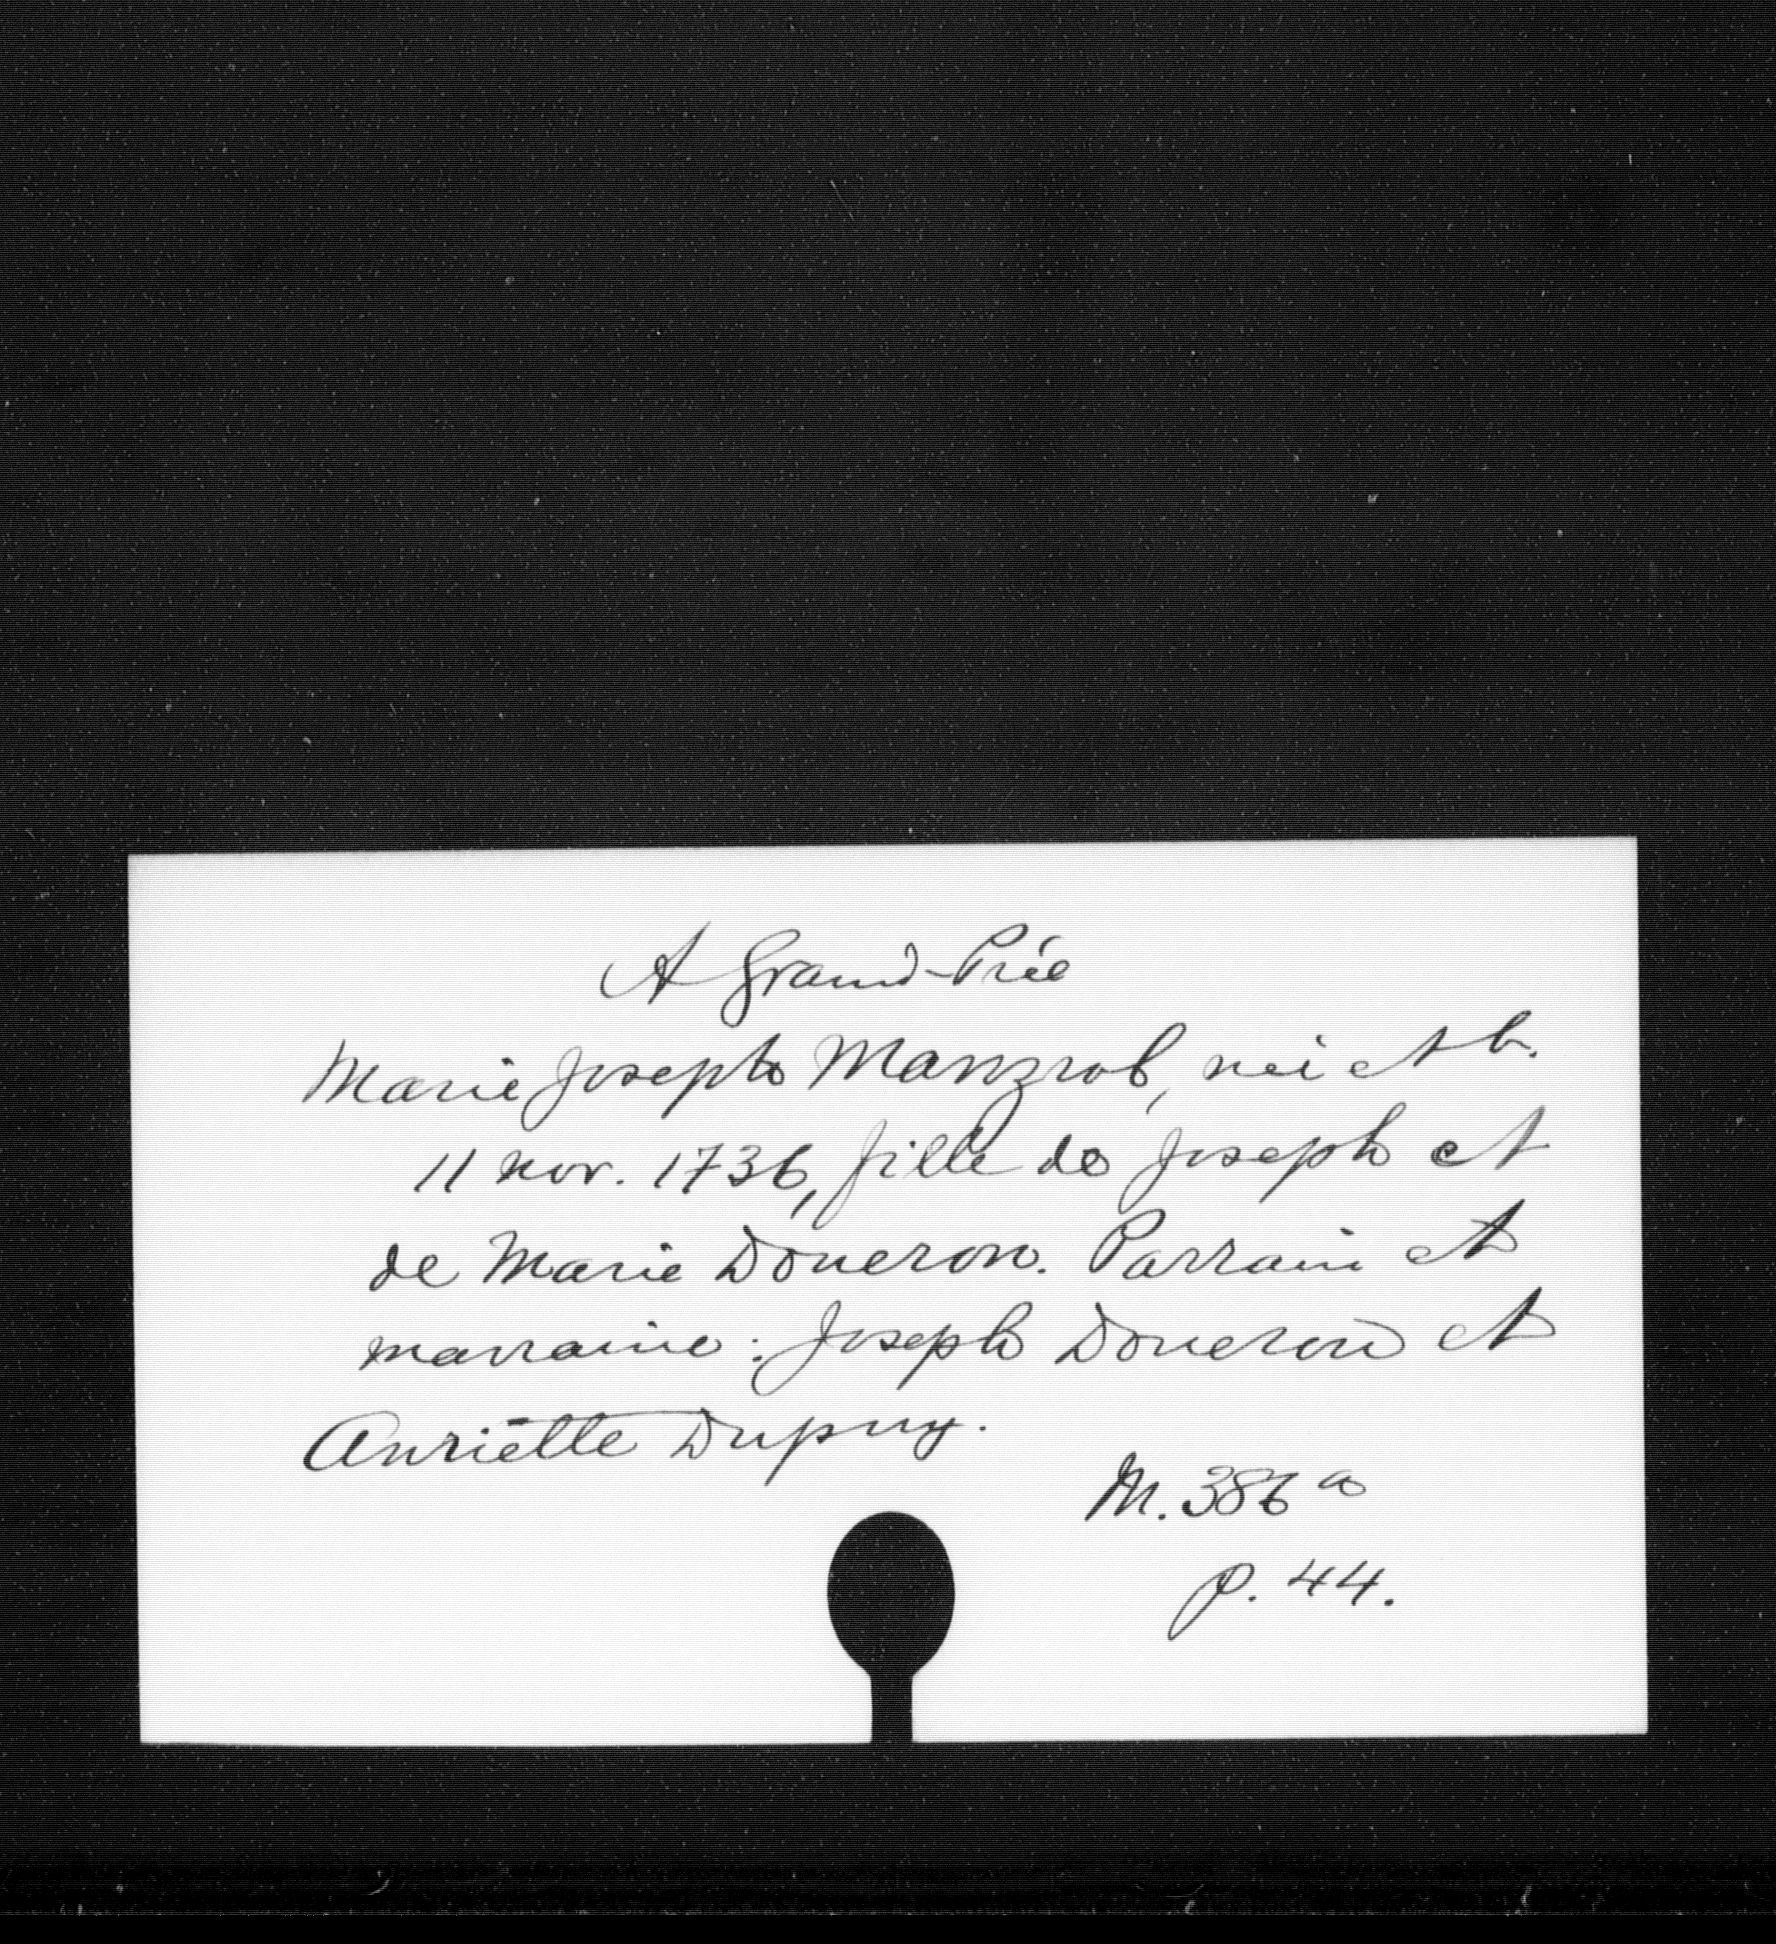 A Grand-Prée
Marie Joseph Manzrol, née et b.
11 nov. 1736, fille de Joseph et
de Marie Doueron. Parrain et
marraine : Joseph Doueron et
Anriette Dupuy.
M. 386 a
p. 44.